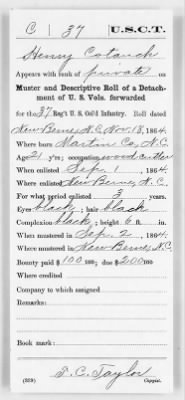 C | 37 | U.S.C.T.
Henry Cotanch
Appears with rank of private on
Muster and Descriptive Roll of a Detach-
ment of U. S. Vols. forwarded
for the 37 Reg't U. S. Col'd Infantry. Roll dated
New Berne, N.C. Nov. 18, 1864.
Where born Martin Co, N.C.
Age 21 y'rs; occupation wood cutter
When enlisted Sep. 1, 1864.
Where enlisted New Berne, N.C.
For what period enlisted 3 years.
Eyes black; hair black
Complexion black; height 6 ft. in.
When mustered in Sep. 2, 1864.
Where mustered in New Berne, N.C.
Bounty paid $100 100; due $200 100
Where credited
Company to which assigned
Remarks:
Book mark:
(339) T. C. Taylor
Copyist.